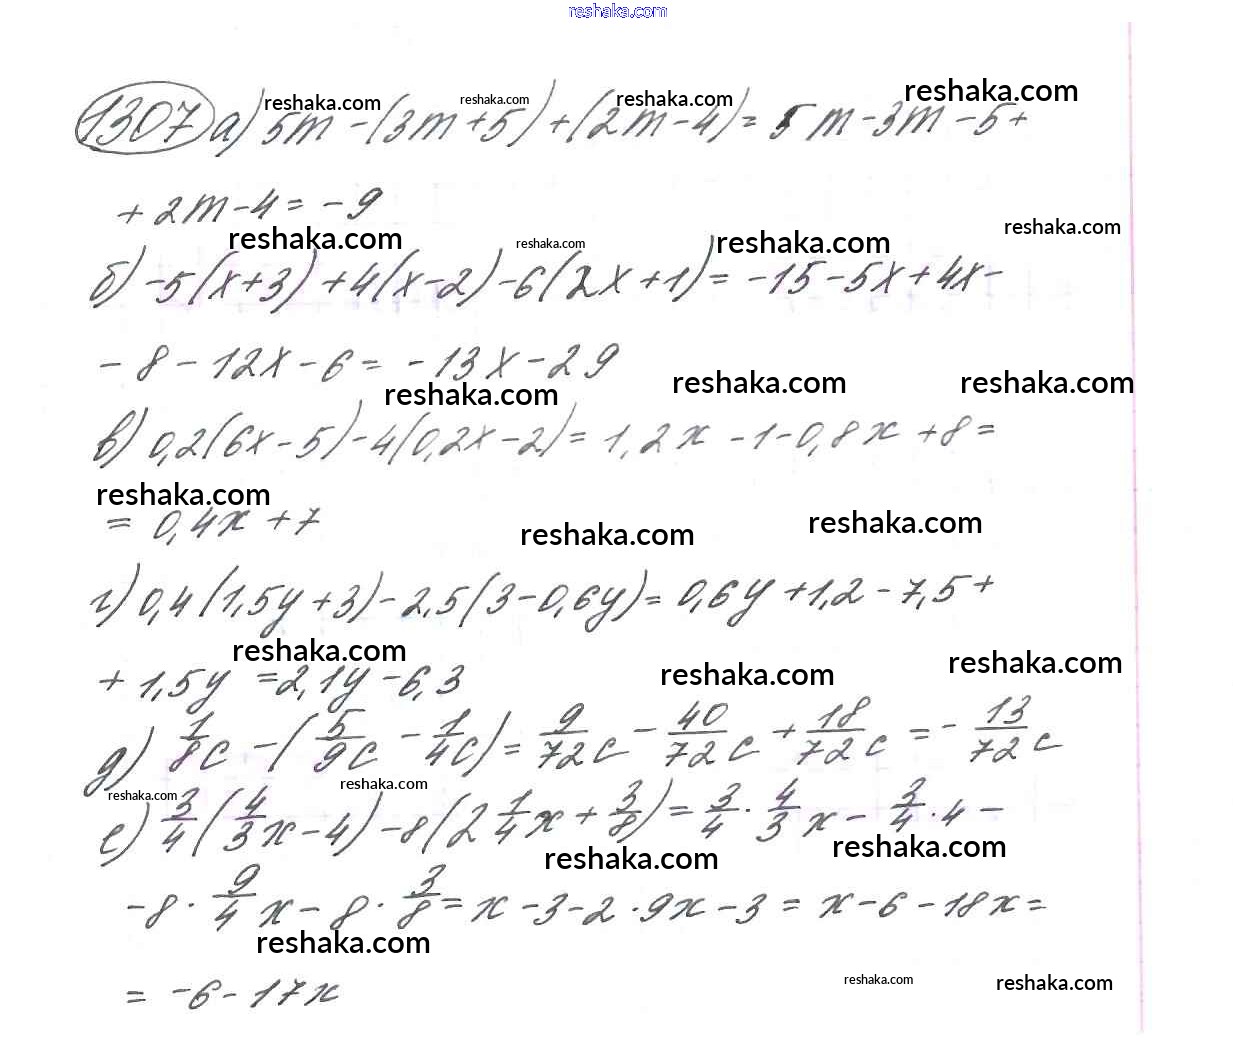 reshaka.com
1307 а) 5m - (3m + 5) + (2m - 4) = 5m - 3m - 5 +
reshaka.com reshaka.com reshaka.com reshaka.com
+ 2m - 4 = - 9
reshaka.com reshaka.com reshaka.com reshaka.com
б) -5(x+3) + 4(x-2) - 6(2x+1) = -15 - 5x + 4x -
- 8 - 12x - 6 = - 13x - 29
reshaka.com reshaka.com reshaka.com
в) 0,2(6x - 5) - 4(0,2x - 2) = 1,2x - 1 - 0,8x + 8 =
reshaka.com
= 0,4x + 7
reshaka.com reshaka.com
г) 0,4(1,5y + 3) - 2,5(3 - 0,6y) = 0,6y + 1,2 - 7,5 +
reshaka.com reshaka.com reshaka.com
+ 1,5y = 2,1y - 6,3
д) 1/8c - (5/9c - 1/4c) = 9/72c - 40/72c + 18/72c = - 13/72c
reshaka.com reshaka.com
е) 3/4(4/3x - 4) - 8(2 1/4x + 3/8) = 3/4 · 4/3x - 3/4 · 4 -
reshaka.com reshaka.com
- 8 · 9/4x - 8 · 3/8 = x - 3 - 2 · 9x - 3 = x - 6 - 18x =
reshaka.com
= -6 - 17x
reshaka.com reshaka.com